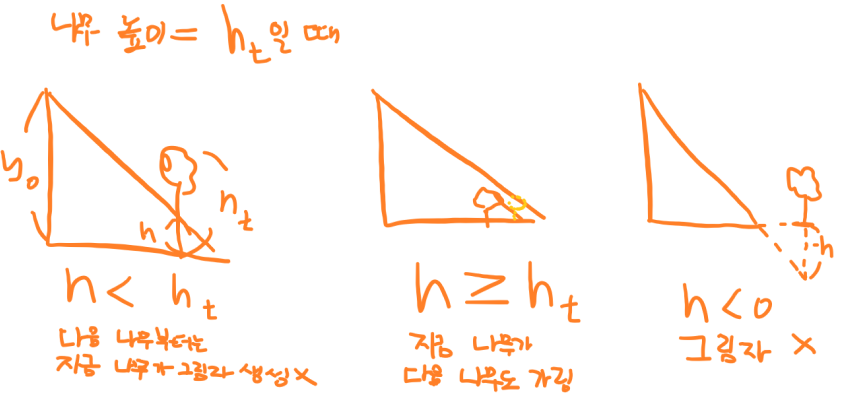 나무 높이 = h_t일 때
y₀
h
h_t
h < h_t
다음 나무부터는
지금 나무가 그림자 생성 X
h ≥ h_t
지금 나무가
다음 나무도 가림
h
h < 0
그림자 X